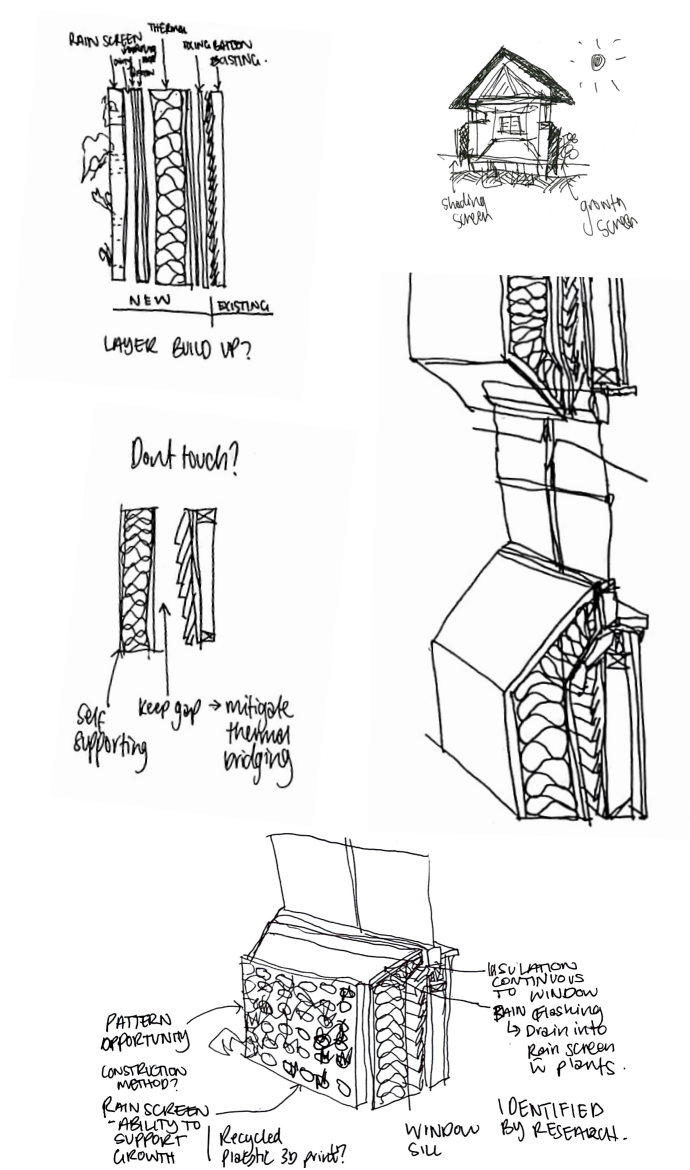 THERMAL
RAIN SCREEN
FIXING BATTON
EXISTING.
NEW
EXISTING
LAYER BUILD UP?
shading
screen
growth
screen
Dont touch?
self
supporting
keep gap → mitigate
thermal
bridging
PATTERN
OPPORTUNITY
CONSTRUCTION
METHOD?
RAIN SCREEN
- ABILITY TO
SUPPORT
GROWTH
Recycled
plastic 3D print?
WINDOW
SILL
INSULATION
CONTINUOUS
TO WINDOW
RAIN flashing
↳ Drain into
Rain screen
w plants.
IDENTIFIED
BY RESEARCH.